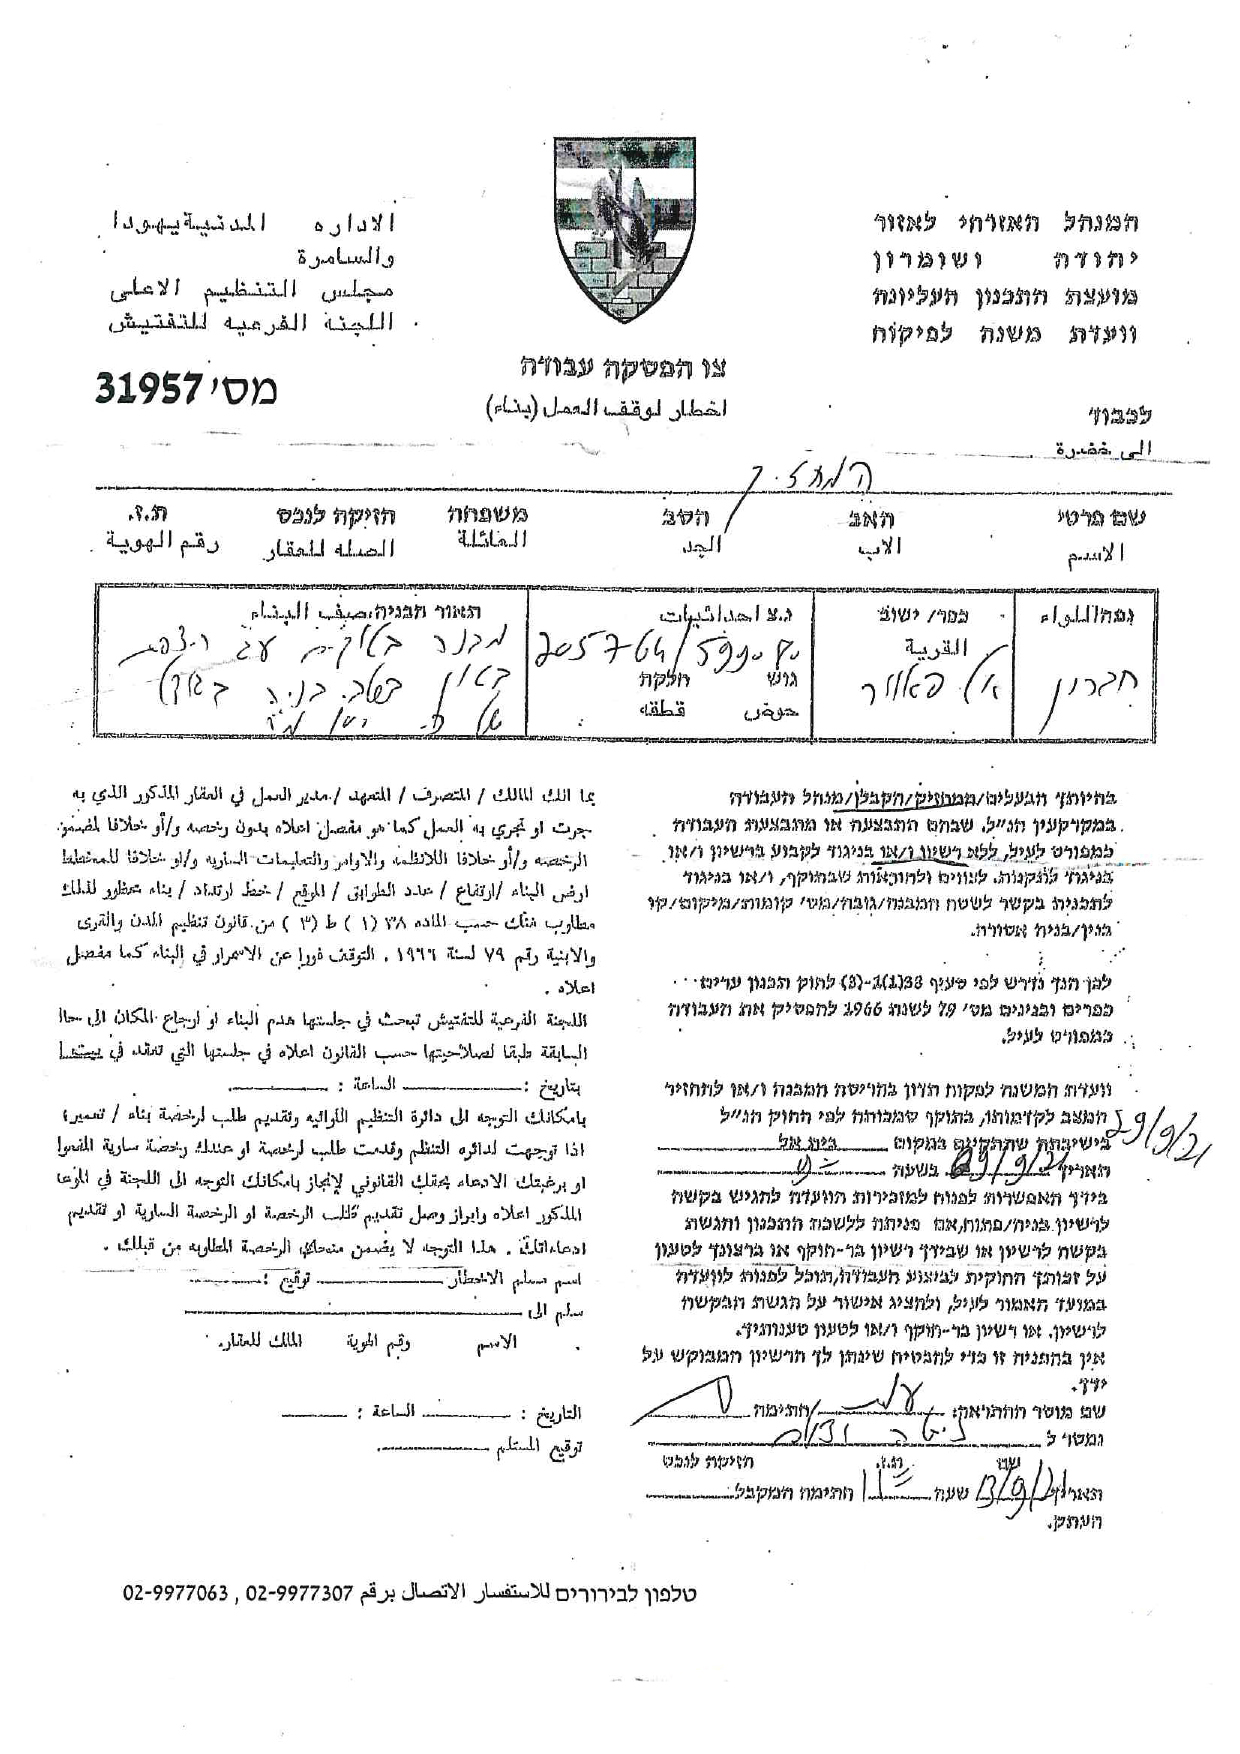 המנהל האזרחי לאזור
יהודה ושומרון
מועצת התכנון העליונה
וועדת משנה לפיקוח
الاداره المدنية يهودا
والسامرة
مجلس التنظيم الاعلى
اللجنة الفرعيه للتفتيش
צו הפסקה עבודה
اخطار لوقف العمل (بناء)
מס' 31957
לכבוד
الى حضرة
המחזיק
שם פרטי האב הסב משפחה חזיקה לנכס ת.ז.
الاسم الاب الجد العائلة الصله للعقار رقم الهوية
נפה/اللواء
חברון
כפר/ ישוב
القرية
אל פאוור
נ.צ احداثيات
205764/599080
גוש חלקה
حوض قطقه
תאור הבניה:صيف البناء
מבנה
בהיותך הבעלים/המחזיק/הקבלן/מנהל העבודה
במקרקעין הנ"ל. שבהם התבצעה או מתבצעת העבודה
כמפורט לעיל, ללא רשיון ו/או בניגוד לקבוע ברשיון ו/או
בניגוד לתקנות. לצווים ולהוראות שבתוקף, ו/או בניגוד
לתכנית בקשר לשטח המבנה/גובה/מס' קומות/מיקום/קו
בנין/בניה אסורה.
לכן הנך נדרש לפי סעיף 38(1)-(3) לחוק תכנון ערים
כפרים ובנינים מס' 79 לשנת 1966 להפסיק את העבודה
כמפורט לעיל.
וועדת המשנה לפקוח תדון בהריסת המבנה ו/או להחזיר
המצב לקדמותו, בתוקף סמכותה לפי החוק הנ"ל
בישיבתה שתתקיים במקום בית אל
29/9/21
תאריך בשעה
בידך האפשרות לפנות למזכירות הוועדה להגיש בקשה
לרשיון בניה/פתוח,אם פניתה ללשכת התכנון והגשת
בקשה לרשיון או שבידך רשיון בר-תוקף או ברצונך לטעון
על זכותך החוקית לביצוע העבודה,תוכל לפנות לוועדה
במועד האמור לעיל, ולהציג אישור על הגשת הבקשה
לרשיון. או רשיון בר-תוקף ו/או לטעון טענותיך.
אין בהפניה זו כדי להבטיח שינתן לך הרשיון המבוקש על
ידך.
שם מוסר ההתראה: /חתימה
נמסר ל
שם ת.ז. חזיקה לנכס
תאריך 13/9/21 שעה 11 חתימה המקבל
העתק.
بما انك المالك / المتصرف / المتعهد / مدير العمل في العقار المذكور الذي به
جرت او تجري به العمل كما هو مفصل اعلاه بدون رخصه و/أو خلافا لمضمون
الرخصه و/أو خلافا للانظمه والاوامر والتعليمات الساريه و/او خلافا للمخطط
ارض البناء /ارتفاع / عدد الطوابق / الموقع / خط ارتداد / بناء محظور لذلك
مطلوب منك حسب الماده ٣٨ (١) ط (٣) من قانون تنظيم المدن والقرى
والابنية رقم ٧٩ لسنة ١٩٦٦ . التوقف فورا عن الاسمرار في البناء كما مفصل
اعلاه .
اللجنة الفرعية للتفتيش تبحث في جلستها هدم البناء او ارجاع المكان الى حالتها
السابقة طبقا لصلاحيتها حسب القانون اعلاه في جلستها التي تعقد في
بتاريخ : الساعة :
بامكانك التوجه الى دائرة التنظيم اللوائيه وتقديم طلب لرخصة بناء / تعمير؛
اذا توجهت لدائره التنظم وقدمت طلب لرخصة او عندك رخصة سارية المفعول
او برغبتك الادعاء بحقك القانوني لإنجاز بامكانك التوجه الى اللجنة في الموعد
المذكور اعلاه وابراز وصل تقديم طلب الرخصة او الرخصة السارية او تقديم
ادعاءاتك . هذا التوجه لا يضمن منحك الرخصة المطلوبه من قبلك .
اسم مسلم الاخطار توقيع :
سلم الى
الاسم وقم الهوية المالك للعقار.
التاريخ : الساعة :
توقيع المستلم
טלפון לבירורים للاستفسار الاتصال برقم 02-9977307 , 02-9977063